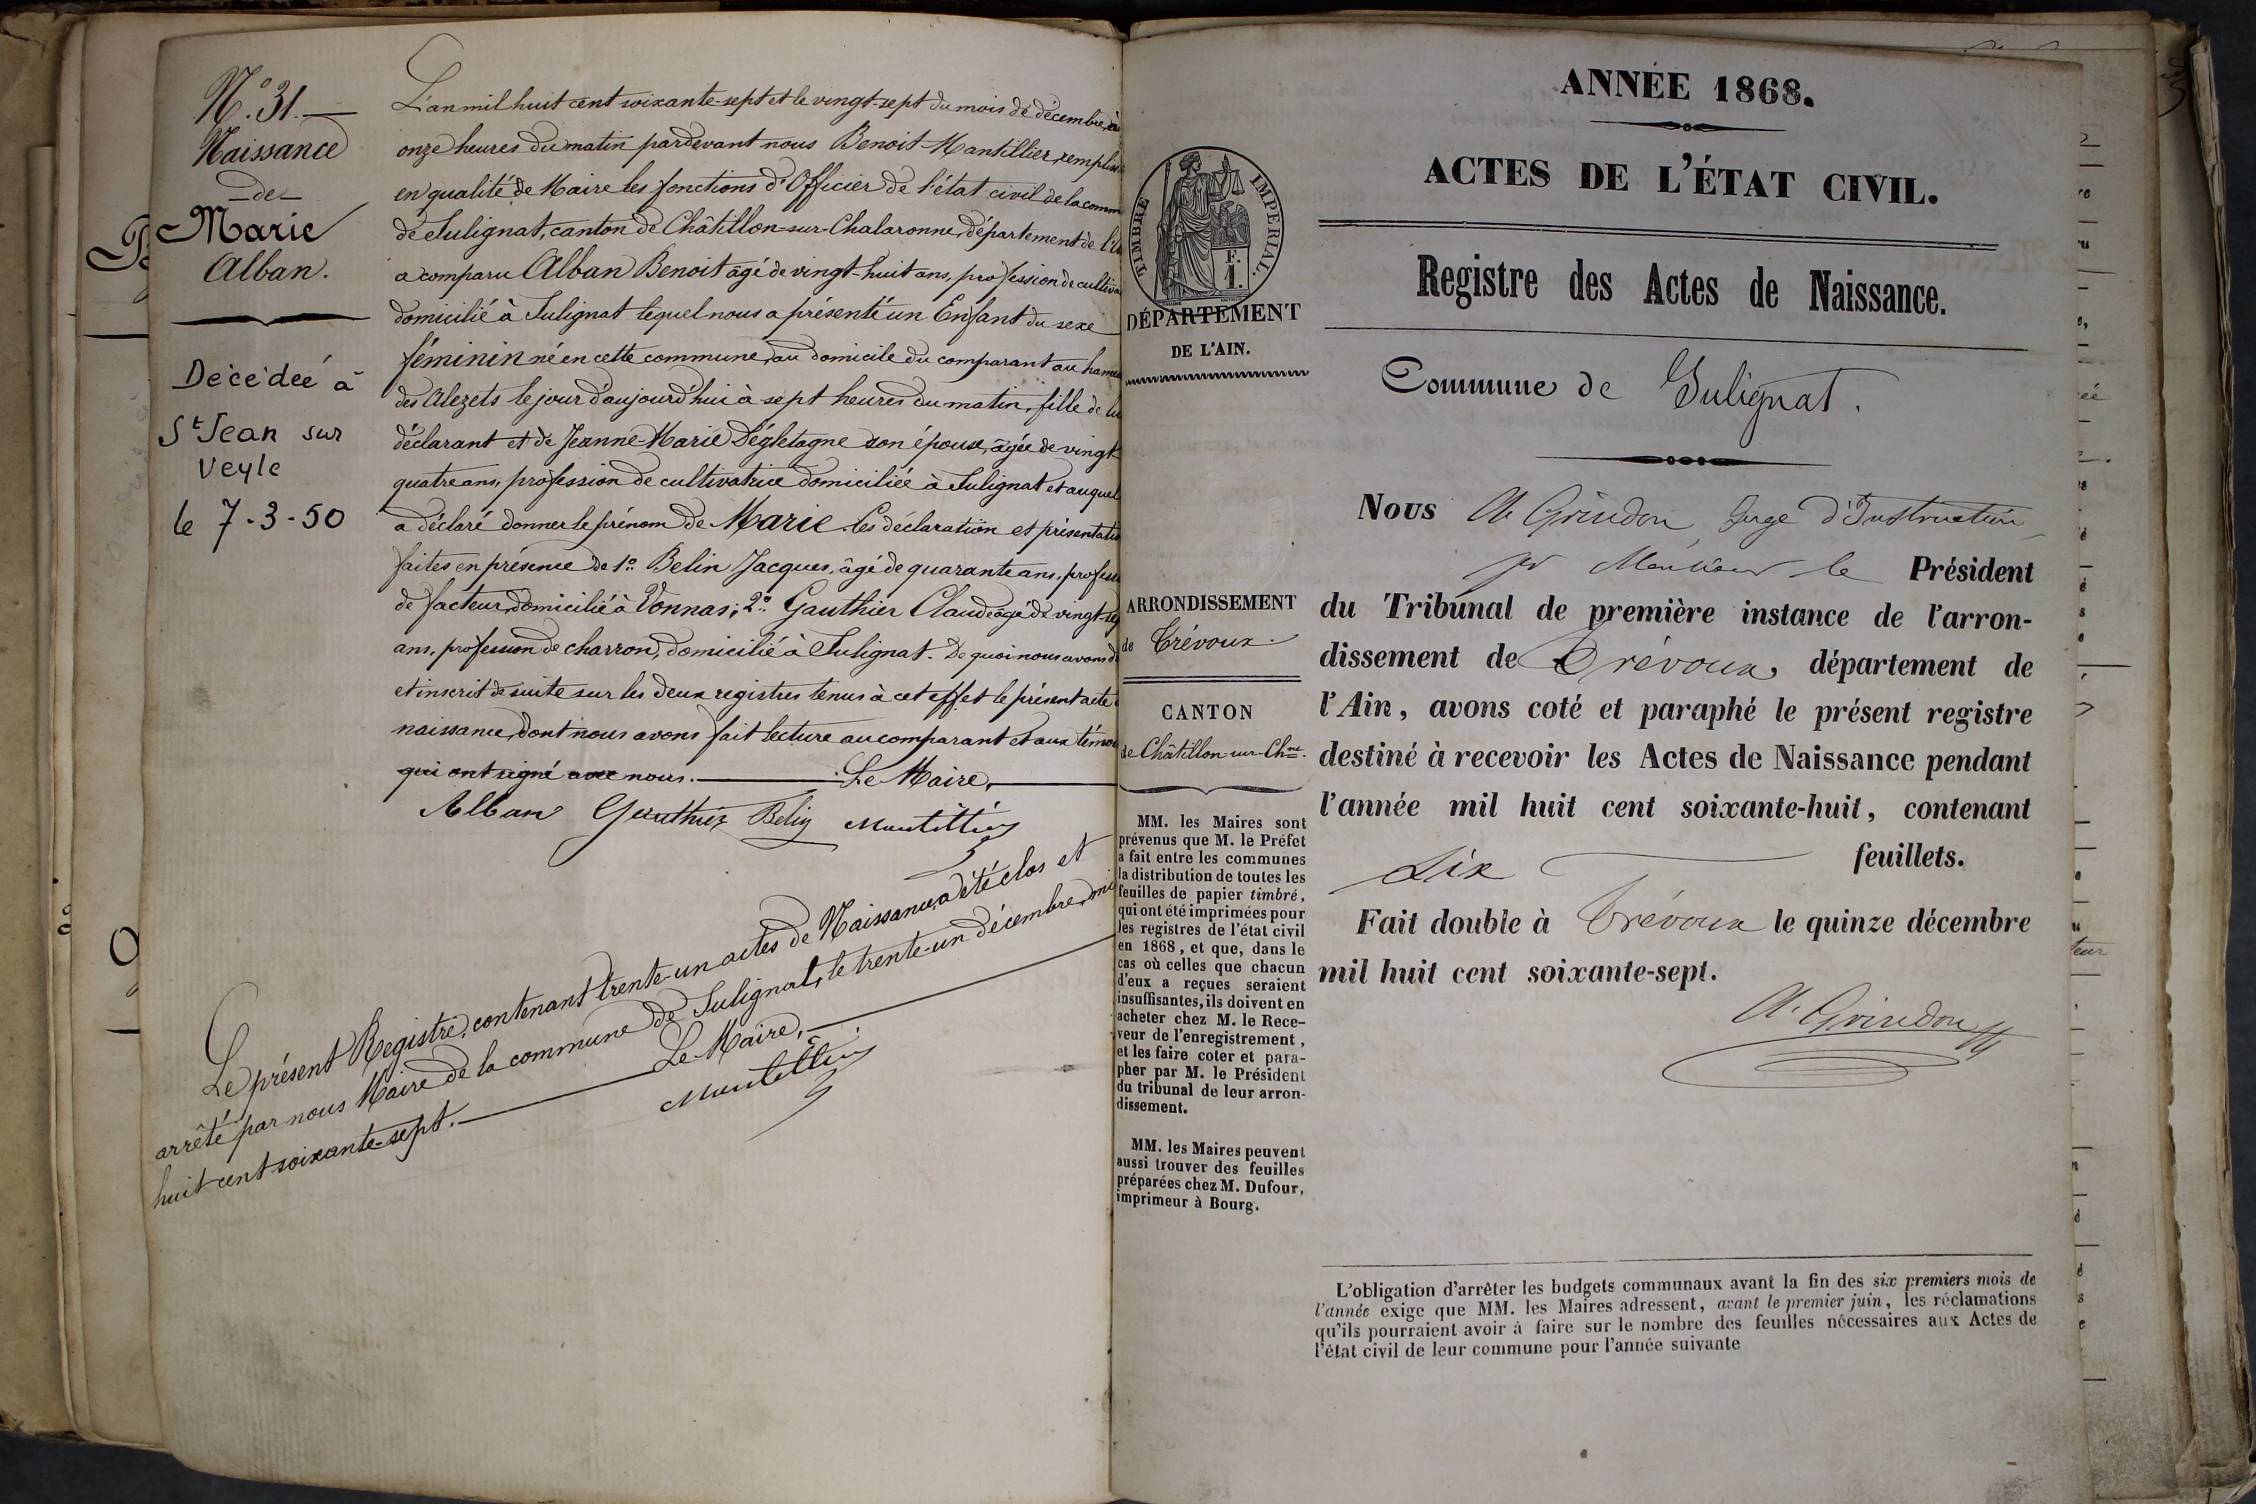 N.° 31. —
Naissance
— de —
Marie
Alban.
Décédée à
St Jean sur
Veyle
le 7-3-50
L'an mil huit cent soixante-sept et le vingt-sept du mois de décembre, à
onze heures du matin pardevant nous Benoit Mantillier, remplissa
en qualité de Maire les fonctions d'Officier de l'état civil de la comm
de Sulignat, canton de Châtillon-sur-Chalaronne, département de l'A
a comparu Alban Benoit âgé de vingt-huit ans, profession de cultiva
domicilié à Sulignat lequel nous a présenté un Enfant du sexe
féminin né en cette commune, au domicile du comparant au hame
des Alezets le jour d'aujourd'hui à sept heures du matin, fille de lui
déclarant et de Jeanne-Marie Dégletagne son épouse, âgée de vingt
quatre ans, profession de cultivatrice domiciliée à Sulignat et auquel
a déclaré donner le prénom de Marie. Les déclaration et présentatio
faites en présence de 1°. Belin Jacques, âgé de quarante ans, profess
de facteur, domicilié à Vonnas; 2°. Gauthier Claude âgé de vingt-se
ans, profession de charron, domicilié à Sulignat. De quoi nous avons d
et inscrit de suite sur les deux registres tenus à cet effet le présent acte
naissance, dont nous avons fait lecture au comparant et aux témo
qui ont signé avec nous. — Le Maire, —
Alban Gauthier Belin Mantillier
Le présent Registre, contenant trente-un actes de Naissance, a été clos et
arrêté par nous Maire de la commune de Sulignat, le trente-un décembre, mi
huit cent soixante-sept. — Le Maire, —
Mantillier
TIMBRE IMPÉRIAL.
F.
1.
DÉPARTEMENT
DE L'AIN.
ARRONDISSEMENT
de Trévoux.
CANTON
de Châtillon-sur-Chne.
MM. les Maires sont
prévenus que M. le Préfet
a fait entre les communes
la distribution de toutes les
feuilles de papier timbré,
qui ont été imprimées pour
les registres de l'état civil
en 1868, et que, dans le
cas où celles que chacun
d'eux a reçues seraient
insuffisantes, ils doivent en
acheter chez M. le Rece-
veur de l'enregistrement,
et les faire coter et para-
pher par M. le Président
du tribunal de leur arron-
dissement.
MM. les Maires peuvent
aussi trouver des feuilles
préparées chez M. Dufour,
imprimeur à Bourg.
ANNÉE 1868.
ACTES DE L'ÉTAT CIVIL.
Registre des Actes de Naissance.
Commune de Sulignat.
Nous A. Grindon, Juge d'Instruction
pr Monsieur le Président
du Tribunal de première instance de l'arron-
dissement de Trévoux, département de
l'Ain, avons coté et paraphé le présent registre
destiné à recevoir les Actes de Naissance pendant
l'année mil huit cent soixante-huit, contenant
Dix feuillets.
Fait double à Trévoux le quinze décembre
mil huit cent soixante-sept.
A. Grindon
L'obligation d'arrêter les budgets communaux avant la fin des six premiers mois de
l'année exige que MM. les Maires adressent, avant le premier juin, les réclamations
qu'ils pourraient avoir à faire sur le nombre des feuilles nécessaires aux Actes de
l'état civil de leur commune pour l'année suivante